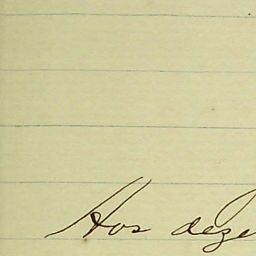 Aos deze